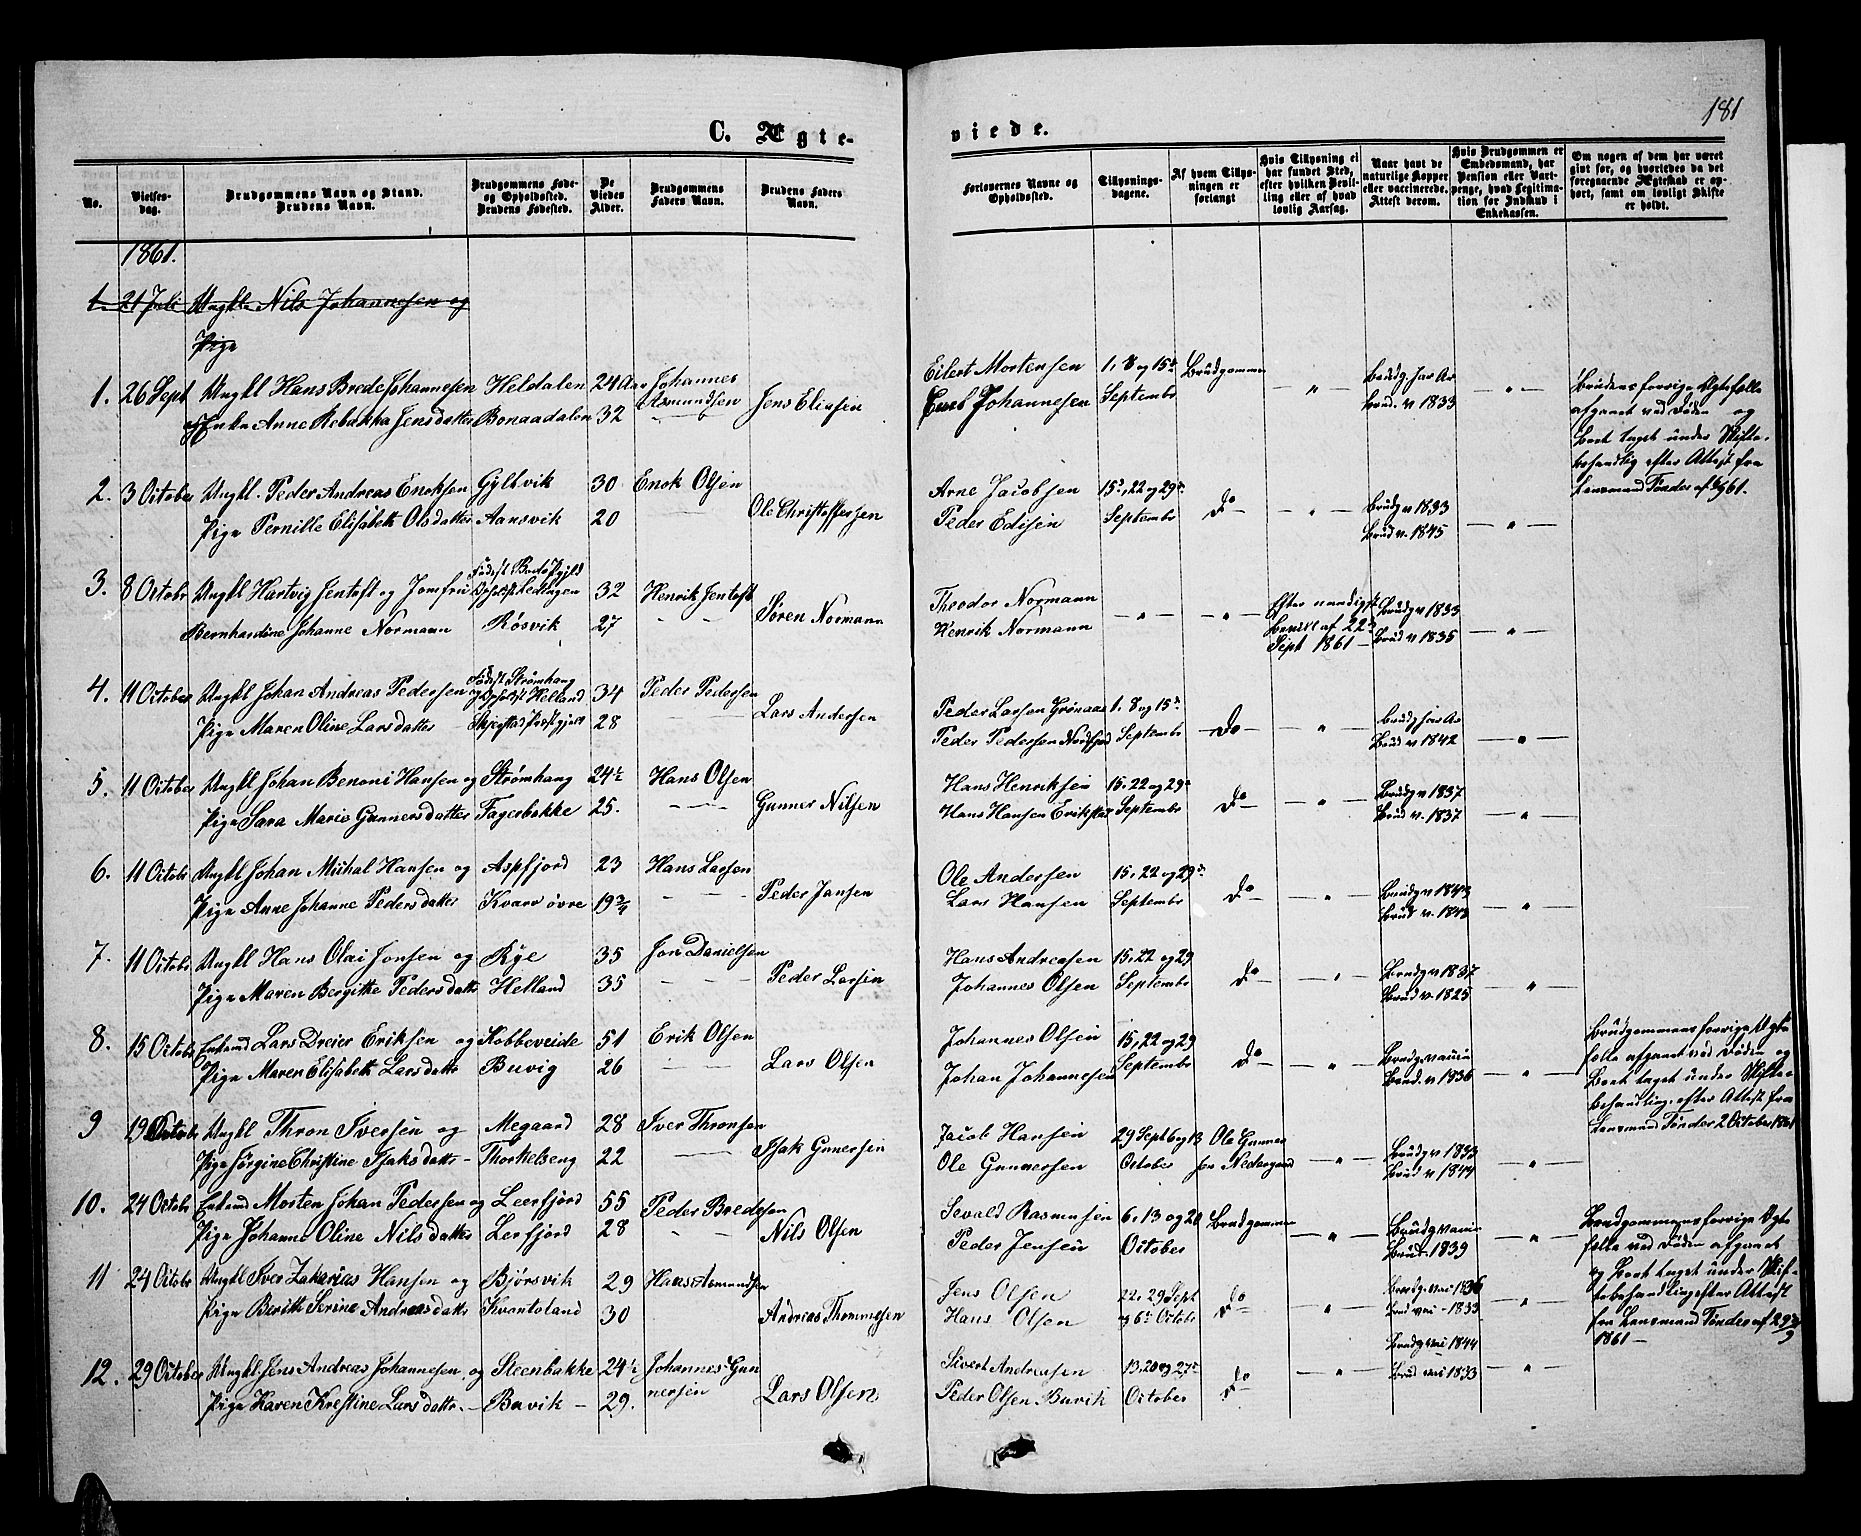 181
C. Ægte-
viede.
No.
Vielses-dag.
Brudgommens Navn og Stand.
Brudens Navn.
Brudgommens Føde- og Opholdssted.
Brudens Fødested.
De Viedes Alder.
Brudgommens Faders Navn.
Brudens Faders Navn.
Forlovernes Navne og Opholdssted.
Tillysnings-dagene.
Af hvem Tillysningen er forlangt
Hvis Tillysning ei har fundet Sted, efter hvilken Bevilling eller af hvad lovlig Aarsag.
Naar havt de naturlige Kopper eller vaccinerede. Attest derom.
Hvis Brudgommen er Embedsmand, har Pension eller Vartpenge, hvad Legitimation for Indskud i Enkekassen.
Om nogen af dem har været givt før, og hvorledes da det foregaaende Ægteskab er ophørt, samt om lovligt Skifte er holdt.
1861.
1. 21 Juli Ungkl Nils Johannesen og
Pige
1. 26 Sept Ungkl Hans Brede Johannesen Heldalen 24 Aar Johannes Asmundsen Eilert Mortensen 1, 8 og 15de Brudgommen " Brudg har Ar "
og Enke Anne Rebakka Jensdatter Bonaadalen 32 — Jens Eliasen Johannesen Septembr Brud. v 1833
Brudens forrige Ægtefælle
afgaaet ved Døden og
Boet taget under Skifte-
behandlig efter Attest fra
Lensmand Tønder af
2. 3 October Ungkl. Peder Andreas Enoksen Gyltvik 30 Enok Olsen Arne Jacobsen 15de, 22 og 29de Do " Brudg v 1833 "
Pige Pernille Elisabeth Olsdatter Aansvik 20 — Ole Christoffersen Peder Edisen Septembr Brud v. 1845
3. 8 Octobr Ungkl Hartvig Jentoft og Jomfru Fødest Bodø Pgjld Opholdst Ledingen 32 Henrik Jentoft Theodor Normann " " Efter naadigst Bevill af 22de Sept 1861 — Brudg v 1833 "
Bernhardine Johanne Normann Røsvik 27 — Søren Normann Henrik Normann Brud v 1835
4. 11 October Ungkl Johan Andreas Pedersen Fødest Strømhang og Opholdst Helland 34 Peder Pedersen Peder Larsen Grønaas 1. 8 og 15de Do " Brudg har Ar "
Pige Maren Oline Larsdatter Skjerstad Præstgjeld 28 — Lars Andersen Peder Pedersen Nordfjord Septembr Brud v 1842
5. 11 October Ungkl Johan Benoni Hansen og Strømhang 24½ Hans Olsen Hans Henriksen 15, 22 og 29de Do " Brudg v 1837 "
Pige Sara Marie Gunnersdatter Fagerbakke 25. — Gunner Nilsen Hans Hansen Septembr Brud v. 1837
6. 11 Octobr Ungkl Johan Michal Hansen og Aspfjord 23 Hans Larsen Ole Andersen 15, 22 og 29de Do " Brudg v 1843 "
Pige Anne Johanne Pedersdatter Kvarv øvre 19¾ — Peder Jansen Lars Hansen Septembr Brud v. 1842
7. 11 Octobr Ungkl Hans Olai Jonsen og Rye 35 Jon Danielsen Hans Andreasen 15, 22 og 29 Do " Brudg v 1837 "
Pige Maren Bergitte Pedersdattr Helland 35 — Peder Larsen Johannes Olsen Septembr Brud v. 1825
8. 15 Octobr Enkemd Lars Dreier Eriksen og Kobbeveide 51 Erik Olsen Johannes Olsen 15, 22 og 29 Do " Brudg vaccin "
Pige Maren Elisabeth Larsdattr Buvig 26 — Lars Olsen Johan Johannesen Septembr Brud. v 1836
Brudgommens forrige Ægte
fælle afgaaet ved Døden og
Boet taget under Skifte-
behandling efter Attest fra
Lensmand Tønder 2 October 1861
9 19 Octobr Ungkl Thron Iversen og Megaard 28 Iver Thronsen Jacob Hansen 29 Sept 6 og 13 Ole Gunner " Brudg v 1833 "
Pige Jørgine Christine Isaksdattr — Thorkelseng 22 — Isak Gunersen Ole Gunnersen October sen Nedergaard Brud v 1844
10. 24 Octobr Enkemd Morten Johan Pedersen og Leerfjord 55 Peder Bredesen Sevald Rasmusen 6, 13 og 20 Brudgommen " Brudg vaccin "
Pige Johanne Oline Nilsdatter Lerfjord 28 — Nils Olsen Peder Jensen October Brud. 1839
Brudgommens forrige Ægte
fælle ved Døden afgaaet
og Boet taget under Skif-
tebehandling efter Attest
fra Lensmand Tønder af 29/9
1861 —
11 24 Octobr Ungkl Iver Zakarias Hansen og Bjørsvik 29 Hans Asmundsen Jens Olsen 22, 29 Sept Do " Brudg vac 1836 "
Pige Berith Serine Andreasdattr Kvantoland 30 Andreas Thommesen Hans Olsen og 6te Octobr Brud vac - 1833
12. 29 October Ungkl Jens Andreas Johannesen og Steenbakke 24½ Johannes Gunnersen Sivert Andreasen 13, 20 og 27de Do " Brudg vac 1844 "
Pige Karen Kristine Larsdattr. — Buvik — 29. Lars Olsen Peder Olsen Buvik October Brud vac 1833